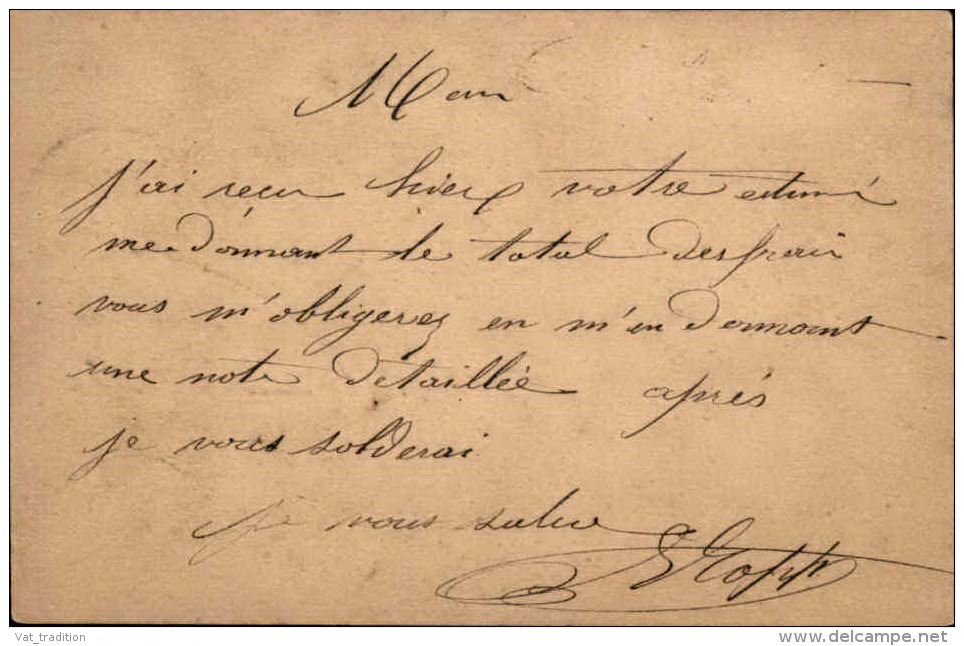 J'ai reçu hier votre estimé
me donnant le total des frais
vous m'obligerez en m'en donnant
une note détaillée après
je vous solderai
je vous salue
Vat_tradition
www.delcampe.net